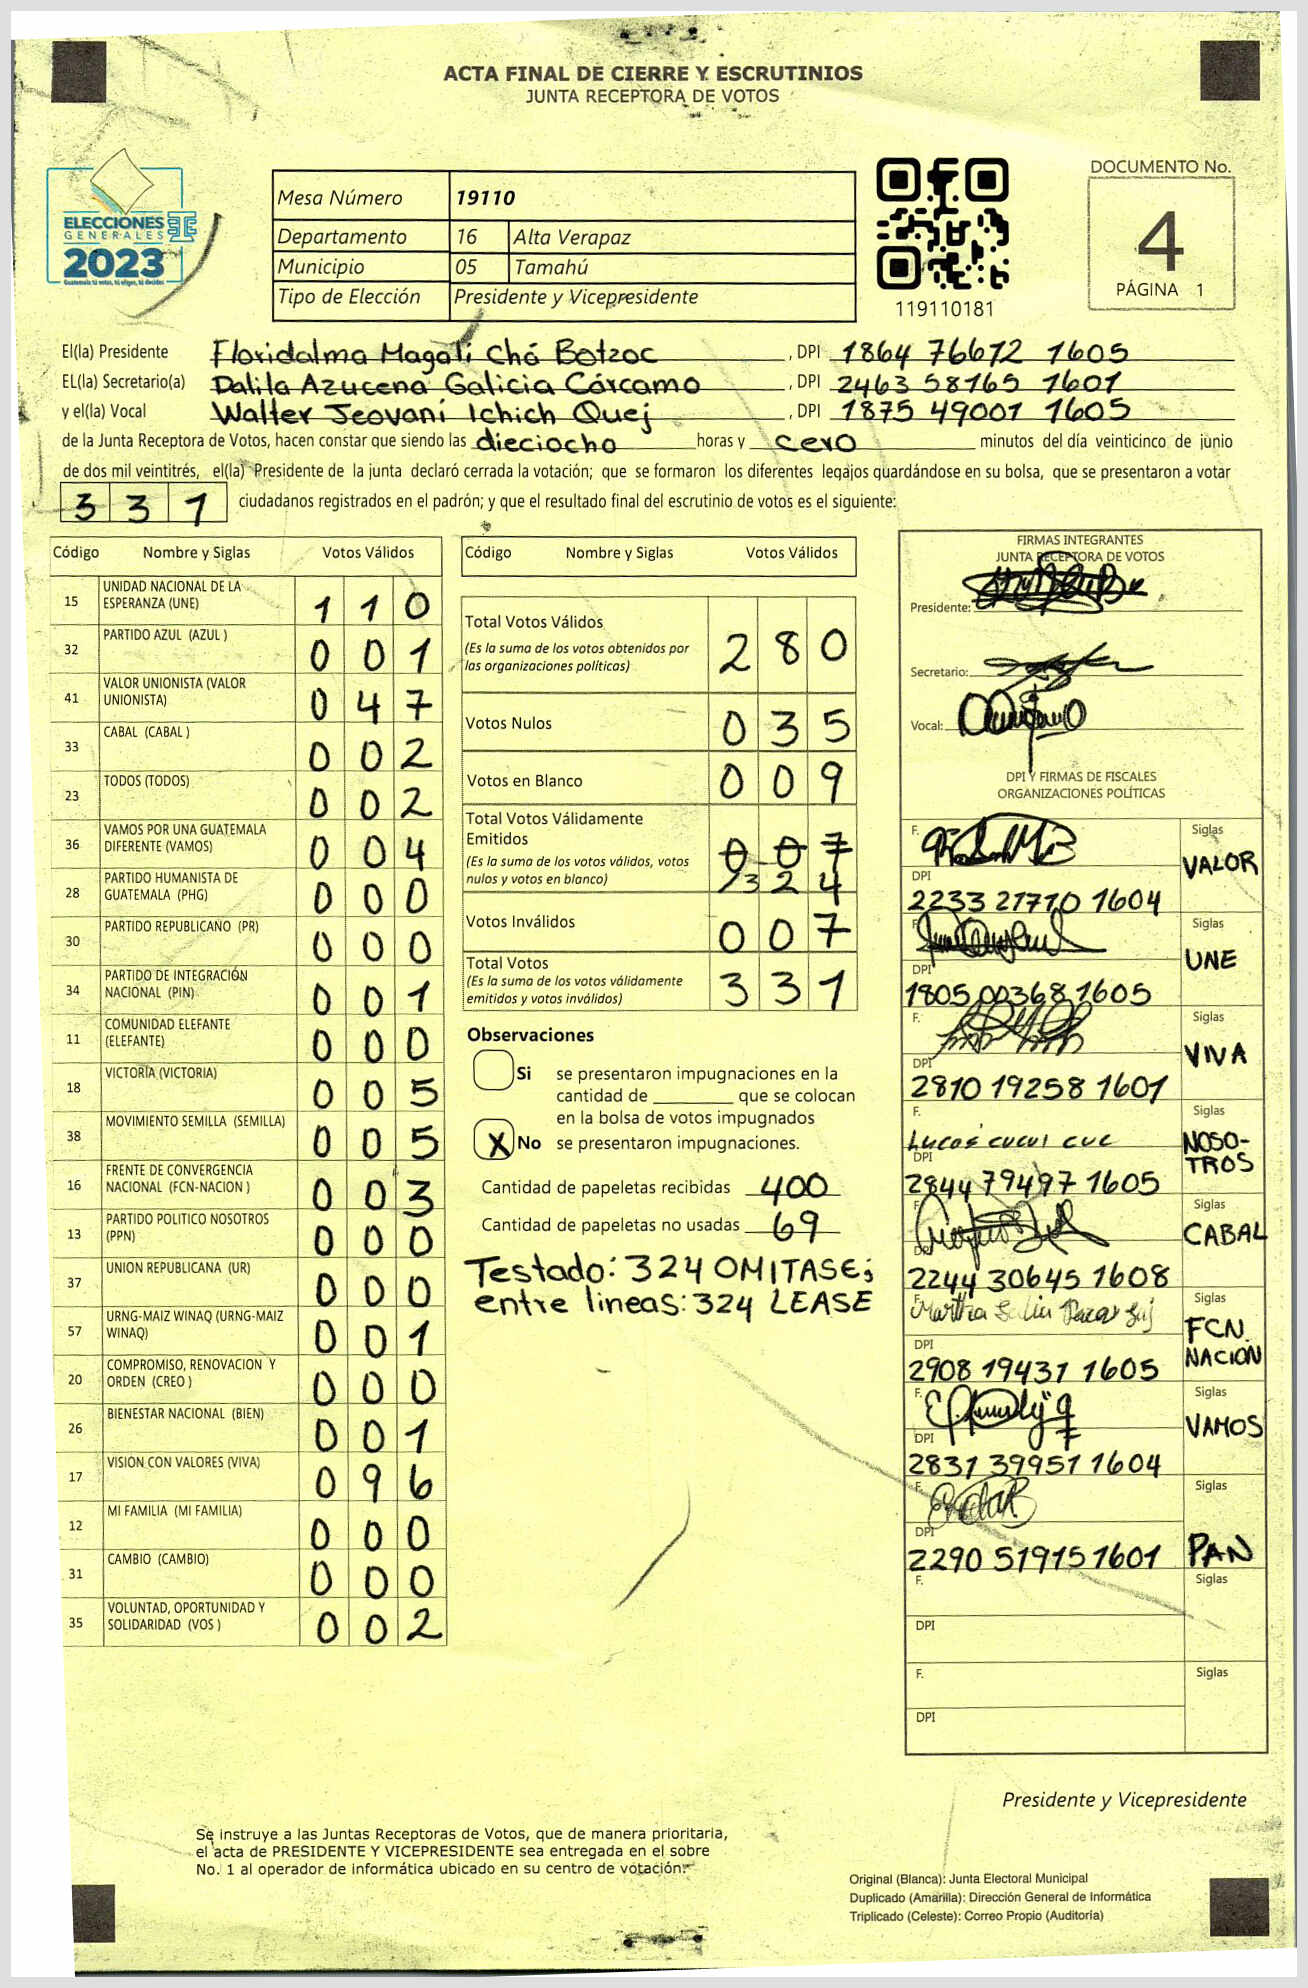 ACTA FINAL DE CIERRE Y ESCRUTINIOS
JUNTA RECEPTORA DE VOTOS
ELECCIONES
GENERALES
2023
Guatemala tú votas, tú eliges, tú decides
TSE
Mesa Número 19110
Departamento 16 Alta Verapaz
Municipio 05 Tamahú
Tipo de Elección Presidente y Vicepresidente
119110181
DOCUMENTO No.
4
PÁGINA 1
El(la) Presidente Floridalma Magalí Chá Botzoc, DPI 1864 76672 1605
EL(la) Secretario(a) Dalila Azucena Galicia Cárcamo, DPI 2463 58165 1601
y el(la) Vocal Walter Jeovaní Ichich Quej, DPI 1875 49001 1605
de la Junta Receptora de Votos, hacen constar que siendo las dieciocho horas y cero minutos del día veinticinco de junio
de dos mil veintitrés, el(la) Presidente de la junta declaró cerrada la votación; que se formaron los diferentes legajos guardándose en su bolsa, que se presentaron a votar
331 ciudadanos registrados en el padrón; y que el resultado final del escrutinio de votos es el siguiente:
Código Nombre y Siglas Votos Válidos
15 UNIDAD NACIONAL DE LA
ESPERANZA (UNE) 110
32 PARTIDO AZUL (AZUL ) 001
41 VALOR UNIONISTA (VALOR
UNIONISTA) 047
33 CABAL (CABAL ) 002
23 TODOS (TODOS) 002
36 VAMOS POR UNA GUATEMALA
DIFERENTE (VAMOS) 004
28 PARTIDO HUMANISTA DE
GUATEMALA (PHG) 000
30 PARTIDO REPUBLICANO (PR) 000
34 PARTIDO DE INTEGRACIÓN
NACIONAL (PIN) 001
11 COMUNIDAD ELEFANTE
(ELEFANTE) 000
18 VICTORIA (VICTORIA) 005
38 MOVIMIENTO SEMILLA (SEMILLA) 005
16 FRENTE DE CONVERGENCIA
NACIONAL (FCN-NACION ) 003
13 PARTIDO POLITICO NOSOTROS
(PPN) 000
37 UNION REPUBLICANA (UR) 000
57 URNG-MAIZ WINAQ (URNG-MAIZ
WINAQ) 001
20 COMPROMISO, RENOVACION Y
ORDEN (CREO ) 000
26 BIENESTAR NACIONAL (BIEN) 001
17 VISION CON VALORES (VIVA) 096
12 MI FAMILIA (MI FAMILIA) 000
31 CAMBIO (CAMBIO) 000
35 VOLUNTAD, OPORTUNIDAD Y
SOLIDARIDAD (VOS ) 002
Código Nombre y Siglas Votos Válidos
Total Votos Válidos 280
(Es la suma de los votos obtenidos por
las organizaciones políticas)
Votos Nulos 035
Votos en Blanco 009
Total Votos Válidamente
Emitidos 007
(Es la suma de los votos válidos, votos
nulos y votos en blanco) 324
Votos Inválidos 007
Total Votos 331
(Es la suma de los votos válidamente
emitidos y votos inválidos)
Observaciones
Si se presentaron impugnaciones en la
cantidad de ________ que se colocan
en la bolsa de votos impugnados
X No se presentaron impugnaciones.
Cantidad de papeletas recibidas 400
Cantidad de papeletas no usadas 69
Testado: 324 OMITASE;
entre lineas: 324 LEASE
FIRMAS INTEGRANTES
JUNTA RECEPTORA DE VOTOS
Presidente:
Secretario:
Vocal:
DPI Y FIRMAS DE FISCALES
ORGANIZACIONES POLÍTICAS
F. Siglas
VALOR
DPI
2233 21770 1604
F. Siglas
UNE
DPI
1805 00368 1605
F. Siglas
VIVA
DPI
2810 19258 1601
F. Siglas
Lucas cucul cuc NOSO-
TROS
DPI
2844 79497 1605
F. Siglas
CABAL
DPI
2244 30645 1608
F. Siglas
Martha
FCN.
NACION
DPI
2908 19431 1605
F. Siglas
VAMOS
DPI
2831 39951 1604
F. Siglas
DPI
2290 51915 1601 PAN
F. Siglas
DPI
F. Siglas
DPI
Presidente y Vicepresidente
Se instruye a las Juntas Receptoras de Votos, que de manera prioritaria,
el acta de PRESIDENTE Y VICEPRESIDENTE sea entregada en el sobre
No. 1 al operador de informática ubicado en su centro de votación.
Original (Blanca): Junta Electoral Municipal
Duplicado (Amarilla): Dirección General de Informática
Triplicado (Celeste): Correo Propio (Auditoría)